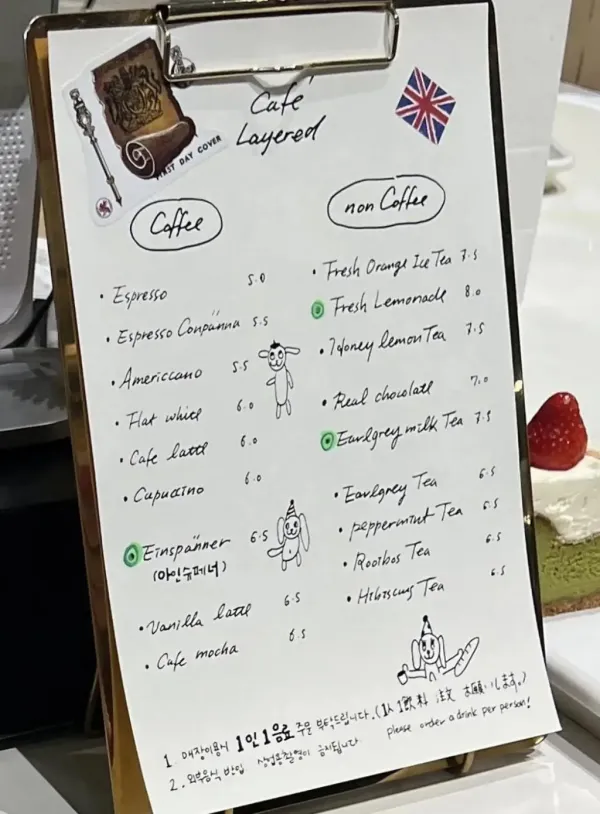 FIRST DAY COVER
Café
Layered
Coffee
• Espresso 5.0
• Espresso Conpänna 5.5
• Americcano 5.5
• Flat white 6.0
• Cafe latte 6.0
• Capuccino 6.0
Einspänner 6.5
(아인슈페너)
• Vanilla latte 6.5
• Cafe mocha 6.5
non Coffee
• Fresh Orange Ice Tea 7.5
Fresh Lemonade 8.0
• Honey lemon Tea 7.5
• Real chocolate 7.0
Earlgrey milk Tea 7.5
• Earlgrey Tea 6.5
• peppermint Tea 6.5
• Rooibos Tea 6.5
• Hibiscus Tea 6.5
1. 매장이용시 1인1음료 주문 부탁드립니다. (1人1飲料 注文 お願いします。)
please order a drink per person!
2. 외부음식 반입, 상업용촬영이 금지됩니다